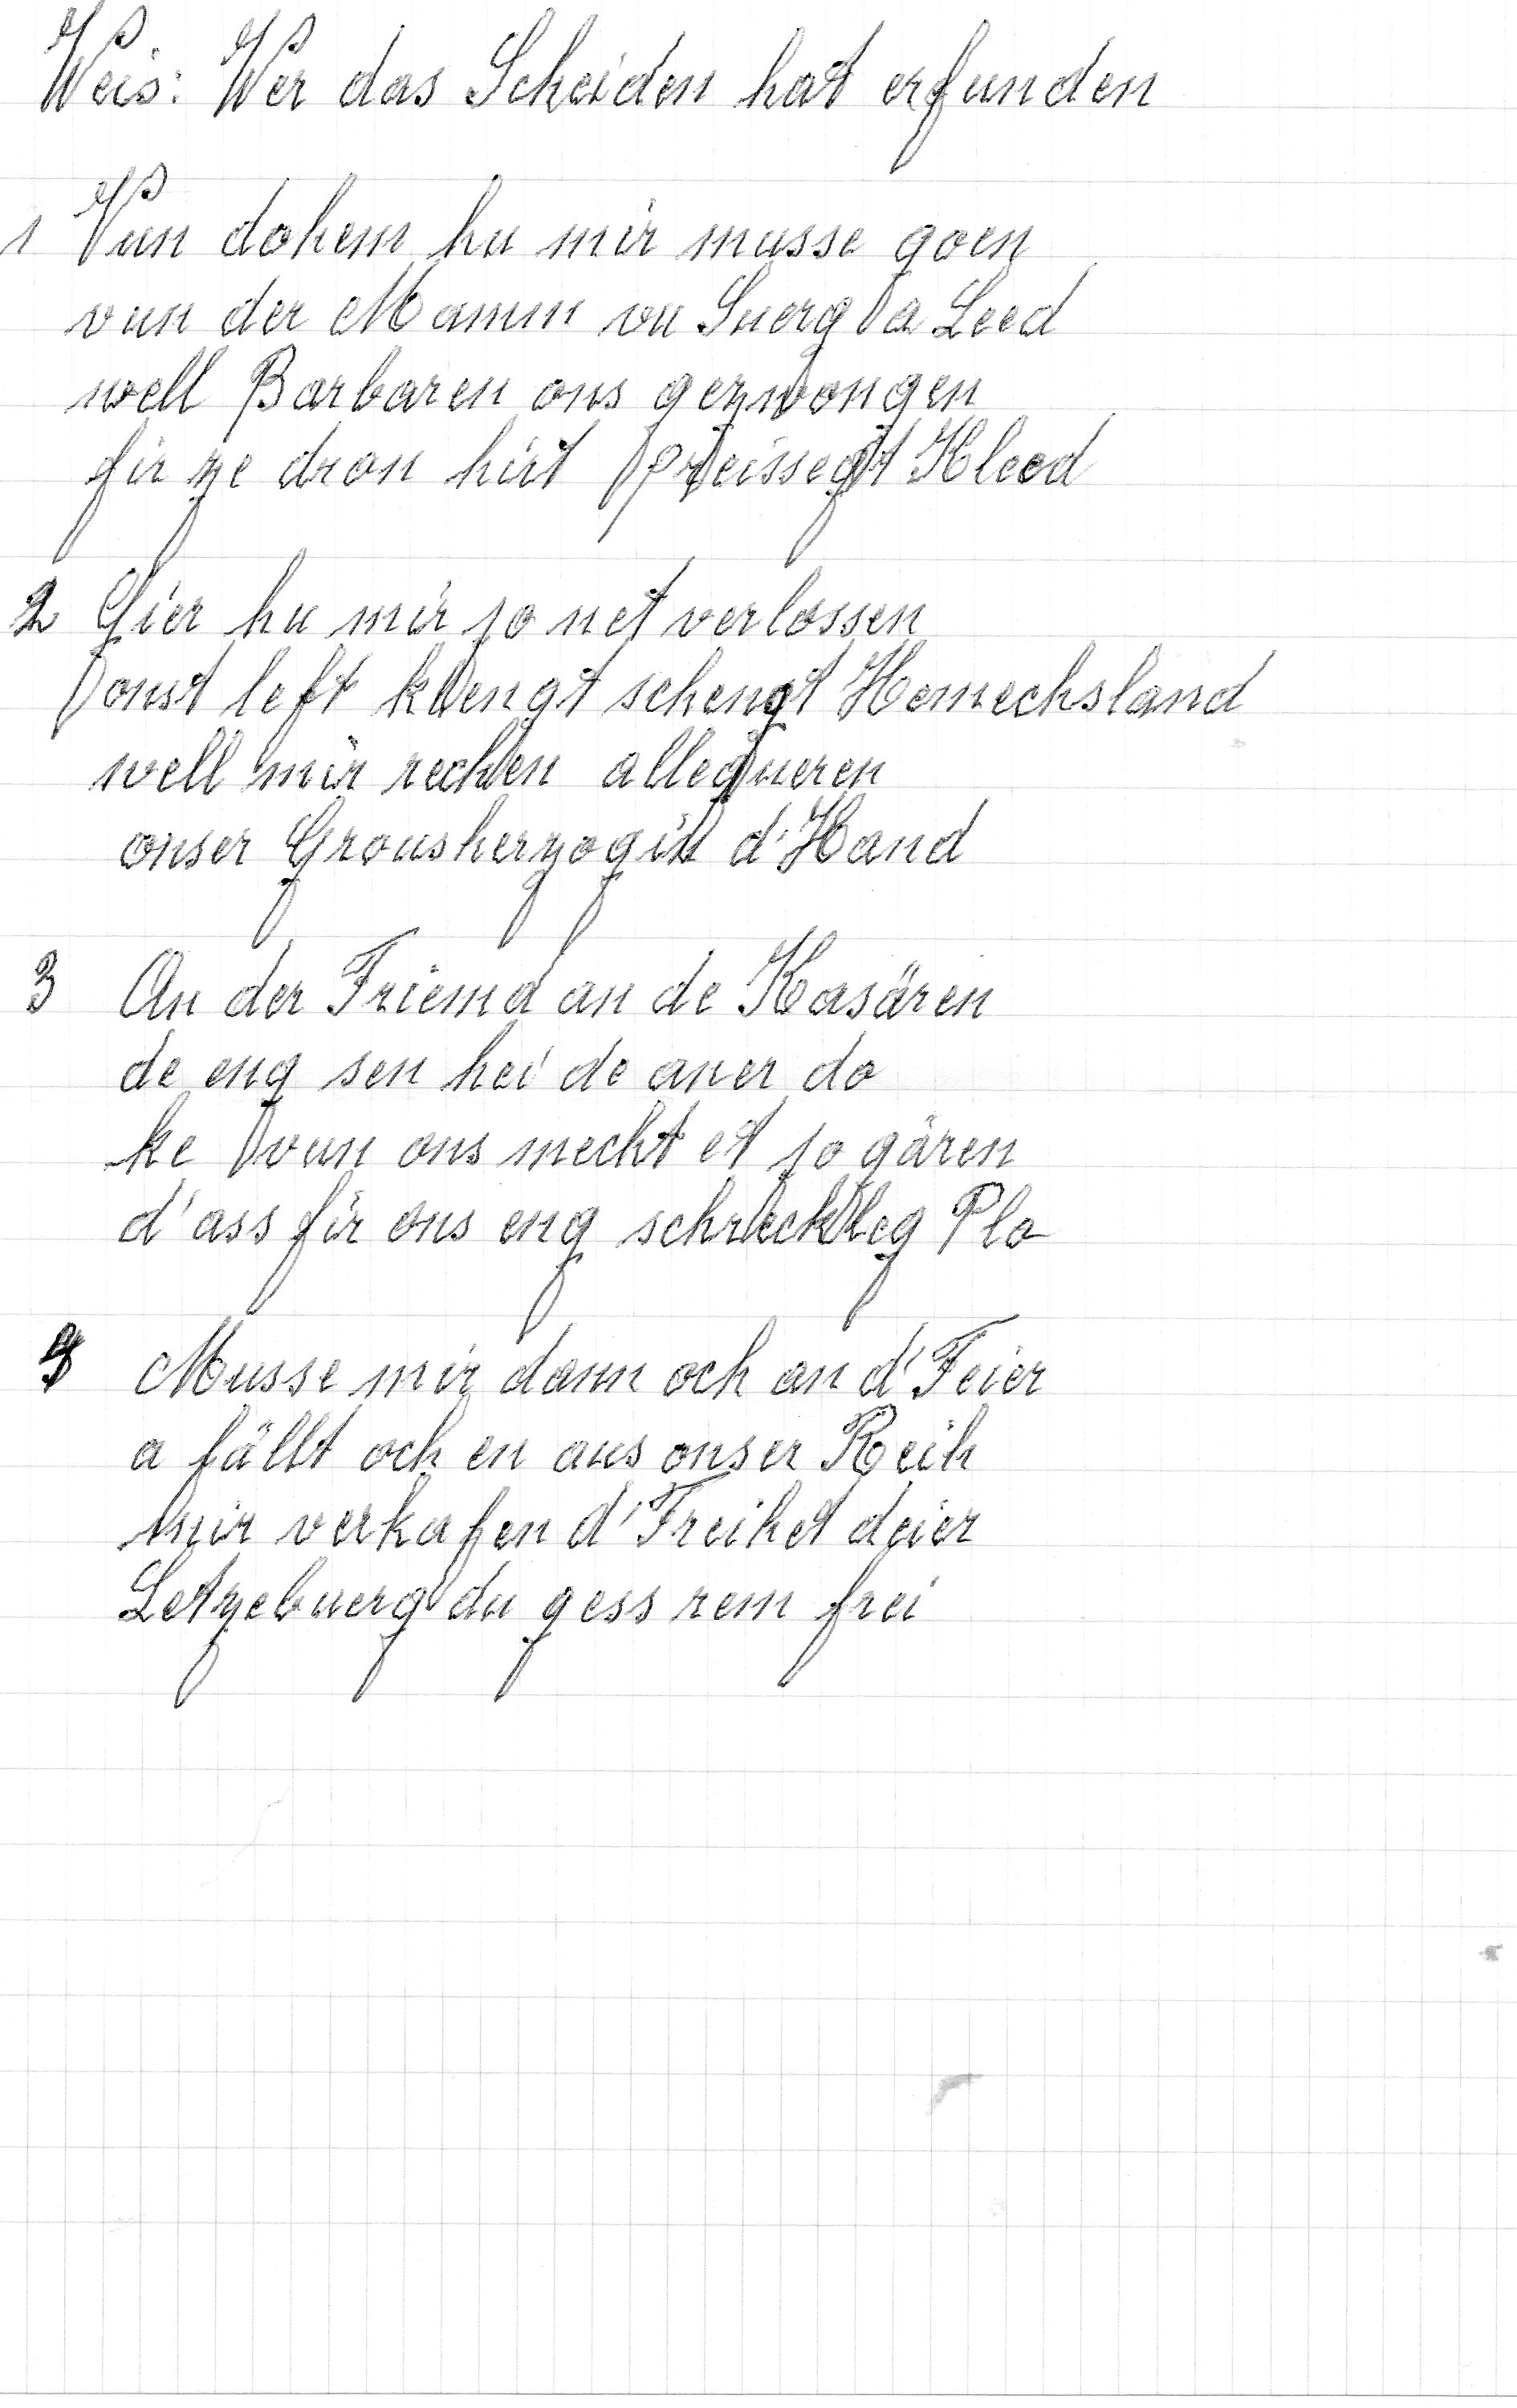 Weis: Wer das Scheiden hat erfunden
1 Vun dohem hu mir musse goen
vun der Mamm vu Suerg a Leed
well Barbaren ons gezwongen
fir ze dron hirt preissegt Kleed
2 Gier hu mir jo net verlossen
onst left klengt schengt Hemechsland
well mir rechten allegueren
onser Grousherzogin d'Hand
3 An der Friemd an de Kasären
de eng sen hei de aner do
ke vun ons mecht et jo gären
d'ass fir ons eng schrecklleg Plo
4 Musse mir dann och an d'Feier
a fällt och en aus onser Reih
mir verkafen d'Freihet deier
Letzebuerg du gess rem frei